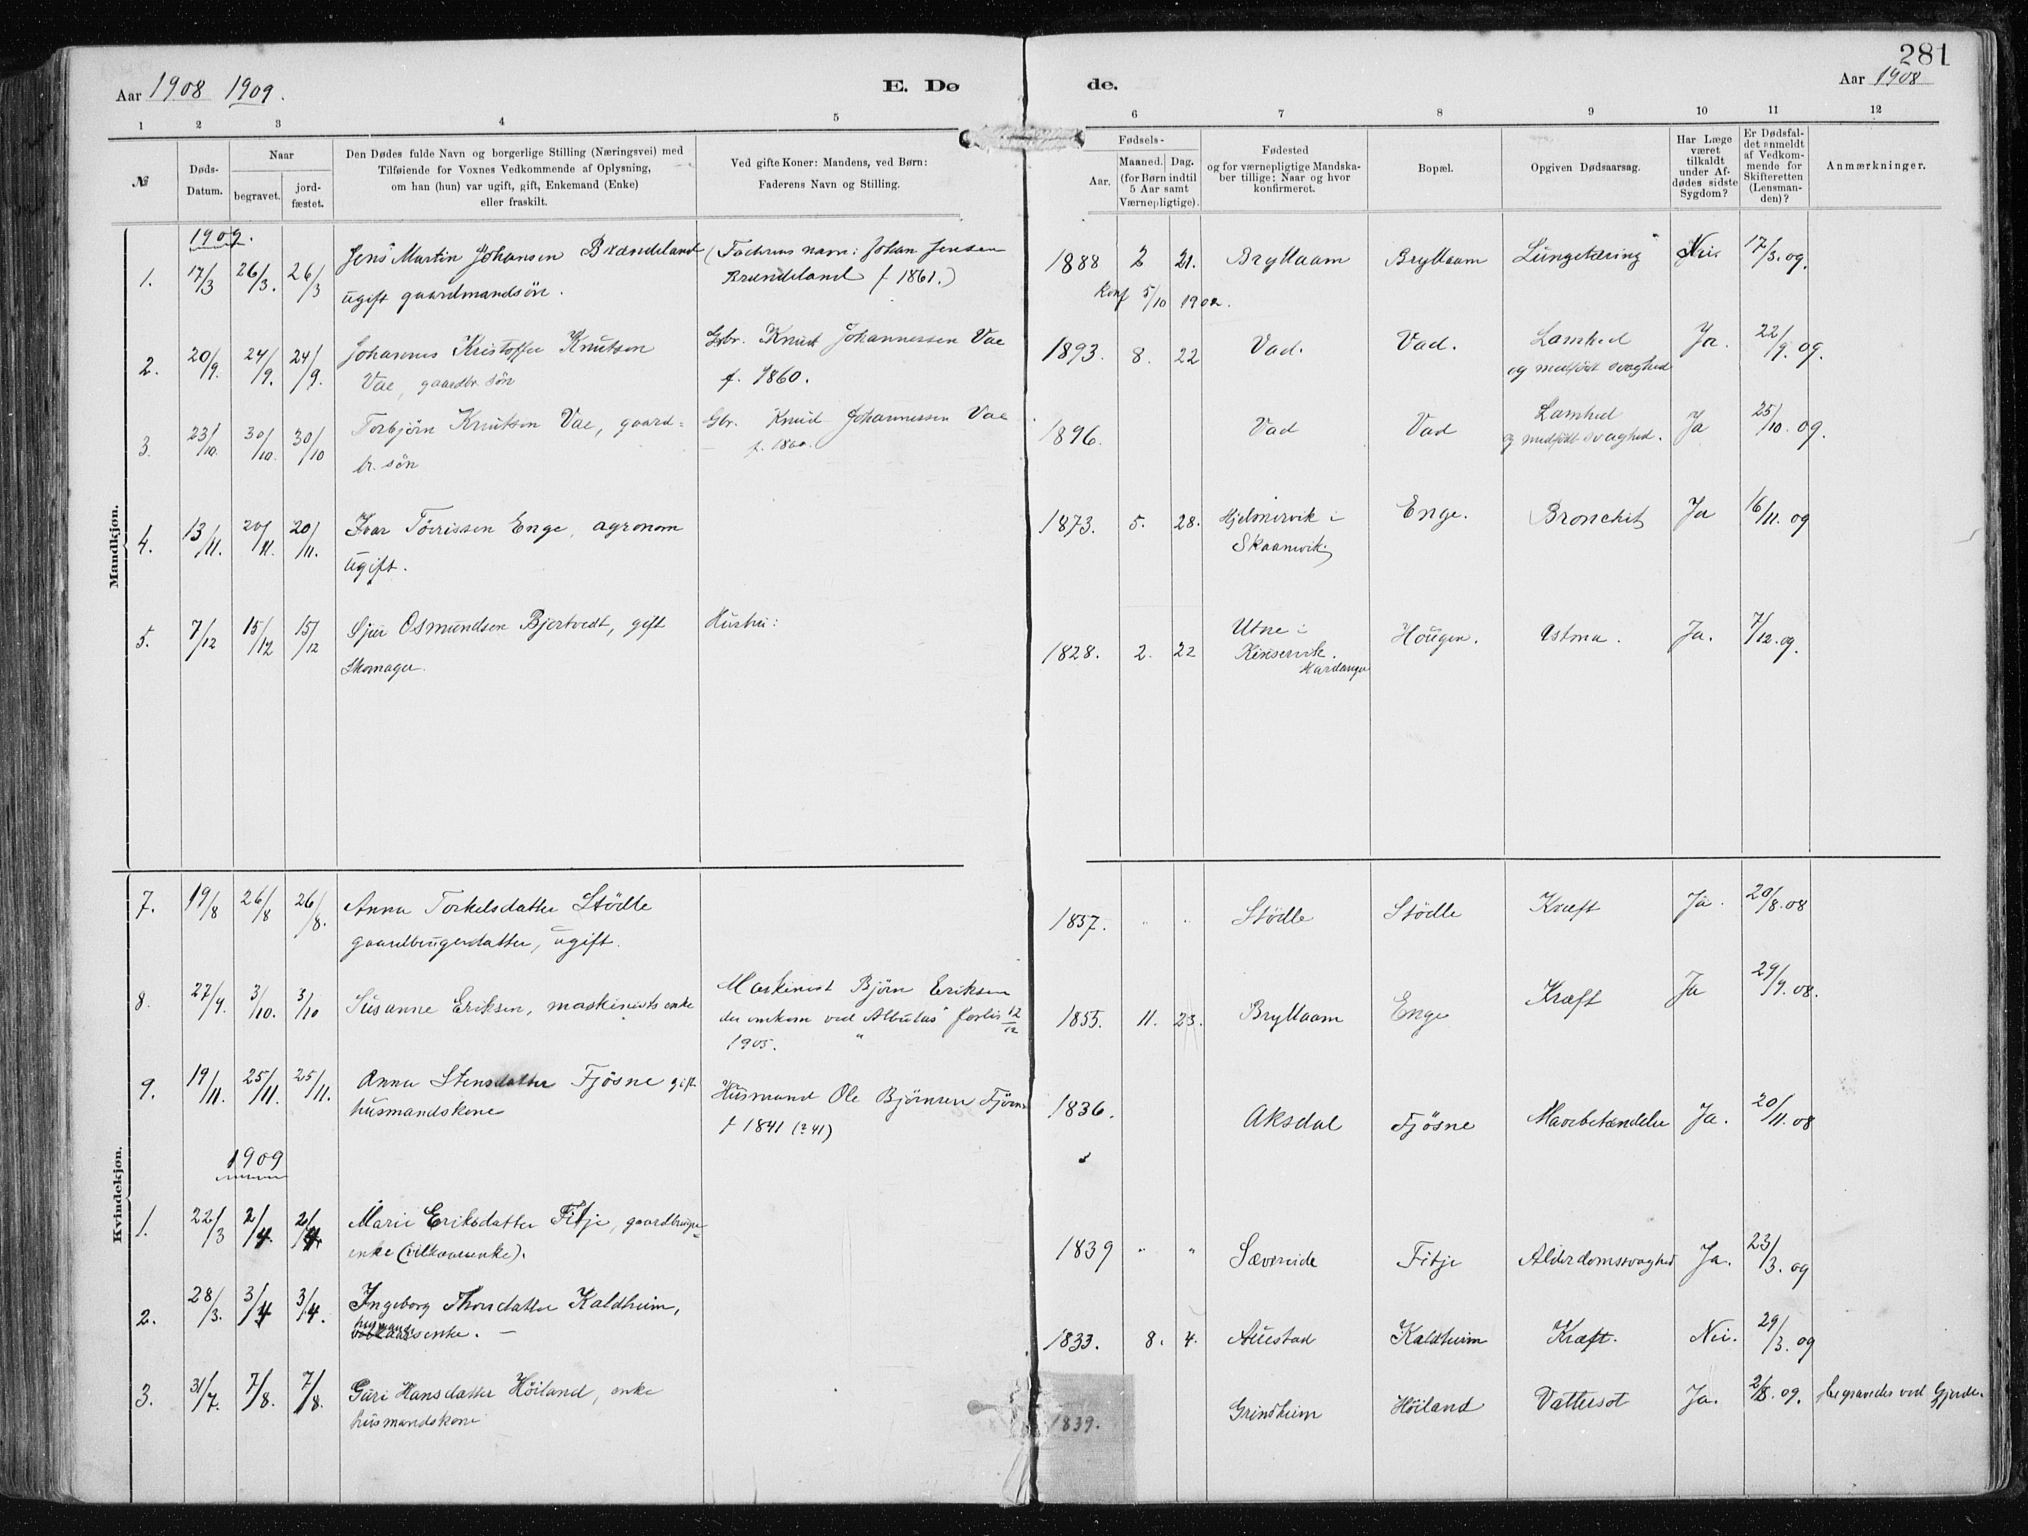 281
Aar 1908 1909.
E. Dø
de.
Aar 1908
1 2 3 4 5 6 7 8 9 10 11 12
№
Døds-
Datum.
Naar
begravet.
jord-
fæstet.
Den Dødes fulde Navn og borgerlige Stilling (Næringsvei) med
Tilføiende for Voxnes Vedkommende af Oplysning,
om han (hun) var ugift, gift, Enkemand (Enke)
eller fraskilt.
Ved gifte Koner: Mandens, ved Børn:
Faderens Navn og Stilling.
Fødsels-
Aar.
Maaned. Dag.
(for Børn indtil
5 Aar samt
Værnepligtige).
Fødested
og for værnepligtige Mandska-
ber tillige: Naar og hvor
konfirmeret.
Bopæl.
Opgiven Dødsaarsag.
Har Læge
været
tilkaldt
under Af-
dødes sidste
Sygdom?
Er Dødsfal-
det anmeldt
af Vedkom-
mende for
Skifteretten
(Lensman-
den)?
Anmærkninger.
Mandkjøn.
1909.
1. 17/3 26/3. 26/3 Jens Martin Johansen Brændeland (Faderens navn: Johan Jensen 1888 2 21. Bryllaam Bryllaam Lungetæring Nei. 17/3. 09.
ugift gaardmandsøn. Brændeland f 1861.)
Konf 5/10 1902.
2. 20/9. 24/9. 24/9. Johannes Kristoffer Knutsen Gbr. Knud Johannessen Vae 1893. 8. 22 Vad. Vad. Lamhed Ja. 22/9. 09.
Vae, gaardbr. søn f. 1860. og medfødt svaghed
3. 23/10. 30/10. 30/10 Torbjørn Knutsen Vae, gaard- Gbr. Knud Johannessen Vae 1896. Vad Vad Lamhed Ja 25/10. 09.
br. søn f. 1860. og medfødt svaghed.
4. 13/11. 20/11. 20/11. Ivar Tørrissen Enge, agronom 1873. 5. 28. Hjelmervik i Enge. Bronchit Ja 16/11. 09
ugift. Skaanvik
5. 7/12 15/12 15/12 Sjur Osmundsen Bjortvedt, gift Hustru: 1828. 2. 22 Utne i Hougen. Astma. Ja. 7/12. 09.
Skomager. Kinservik.
Hardanger
Kvindekjøn.
7. 19/8 26/8 26/8. Anna Torkelsdatter Stödle 1857. " " Stödle Stödle Kræft Ja. 20/8. 08
gaardbrugerdatter, ugift.
8. 27/9. 3/10. 3/10 Susanne Eriksen, maskinists enke Maskinist Bjørn Eriksen 1855. 11. 23. Bryllaam Enge Kræft Ja 29/9. 08.
der omkom ved "Albutas" forlis 12/12
1905.
9. 19/11. 25/11. 25/11. Anna Stensdatter Fjøsne gift Husmand Ole Bjørnsen Fjøsne 1836. Aksdal Fjøsne Mavebetændelse Ja. 20/11. 08
husmandskone f 1841 (? 41)
1909
1. 22/3 2/4. 2/4. Marie Eriksdatter Fitje, gaardbruger- 1839 " " Sævereide Fitje Alderdomssvaghed Ja. 23/3. 09
enke (vilkaarsenke).
2. 28/3. 3/4 3/4. Ingeborg Thorsdatter Kaldheim, 1833. 8. 4. Auestad Kaldheim Kræft. Nei. 29/3. 09
husmandsenke. —
3. 31/7. 7/8. 7/8. Guri Hansdatter Höiland, enke 1839. Grindheim Höiland Vattersot Ja. 2/8. 09. begravedes ved Gjerde.
husmandskone